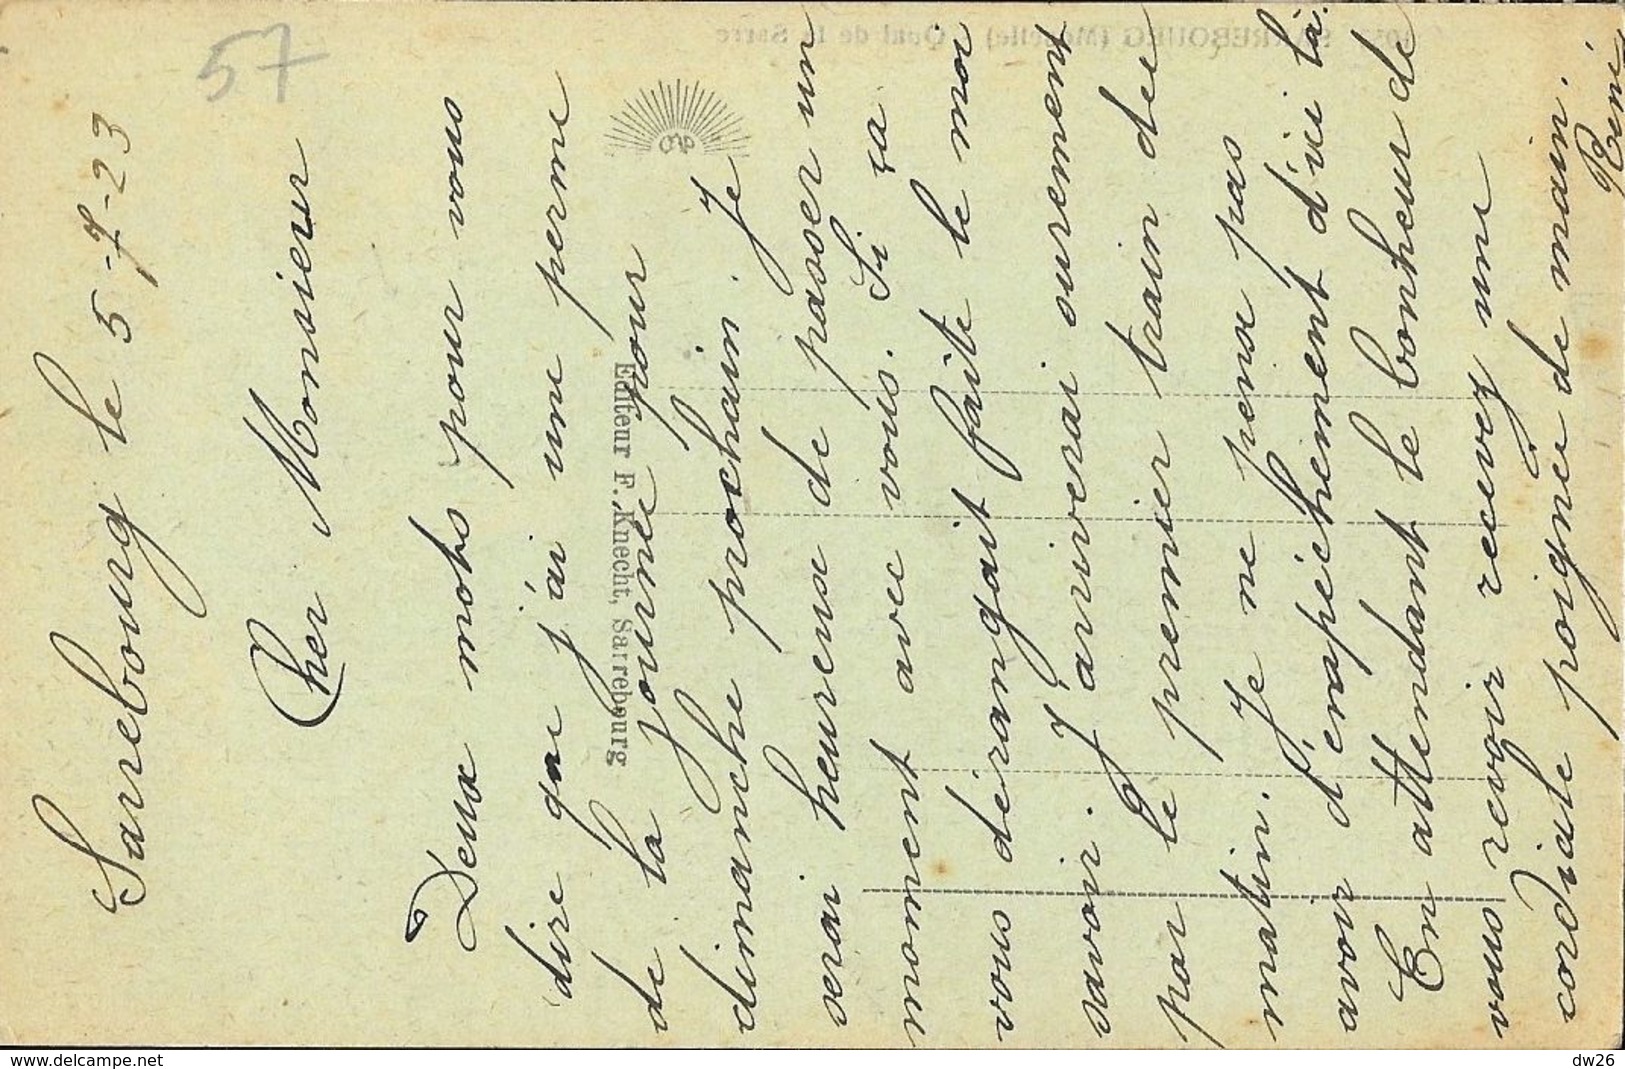 57
Sarrebourg le 5-7-23
Cher Monsieur
Deux mots pour vous
dire que j'ai une perme
de la journée pour
dimanche prochain. Je
serai heureux de passer un
moment avec vous. Si ça
vous dérangait faite le moi
savoir. J'arriverai surement
par le premier train du
matin. Je ne pense pas
avoir d'empéchement d'ici là.
En attendant le bonheur de
vous revoir recevez une
cordiale poignée de main.
René
Editeur F. Knecht, Sarrebourg
SARREBOURG (Moselle) Quai de la Sarre
www.delcampe.net
dw26